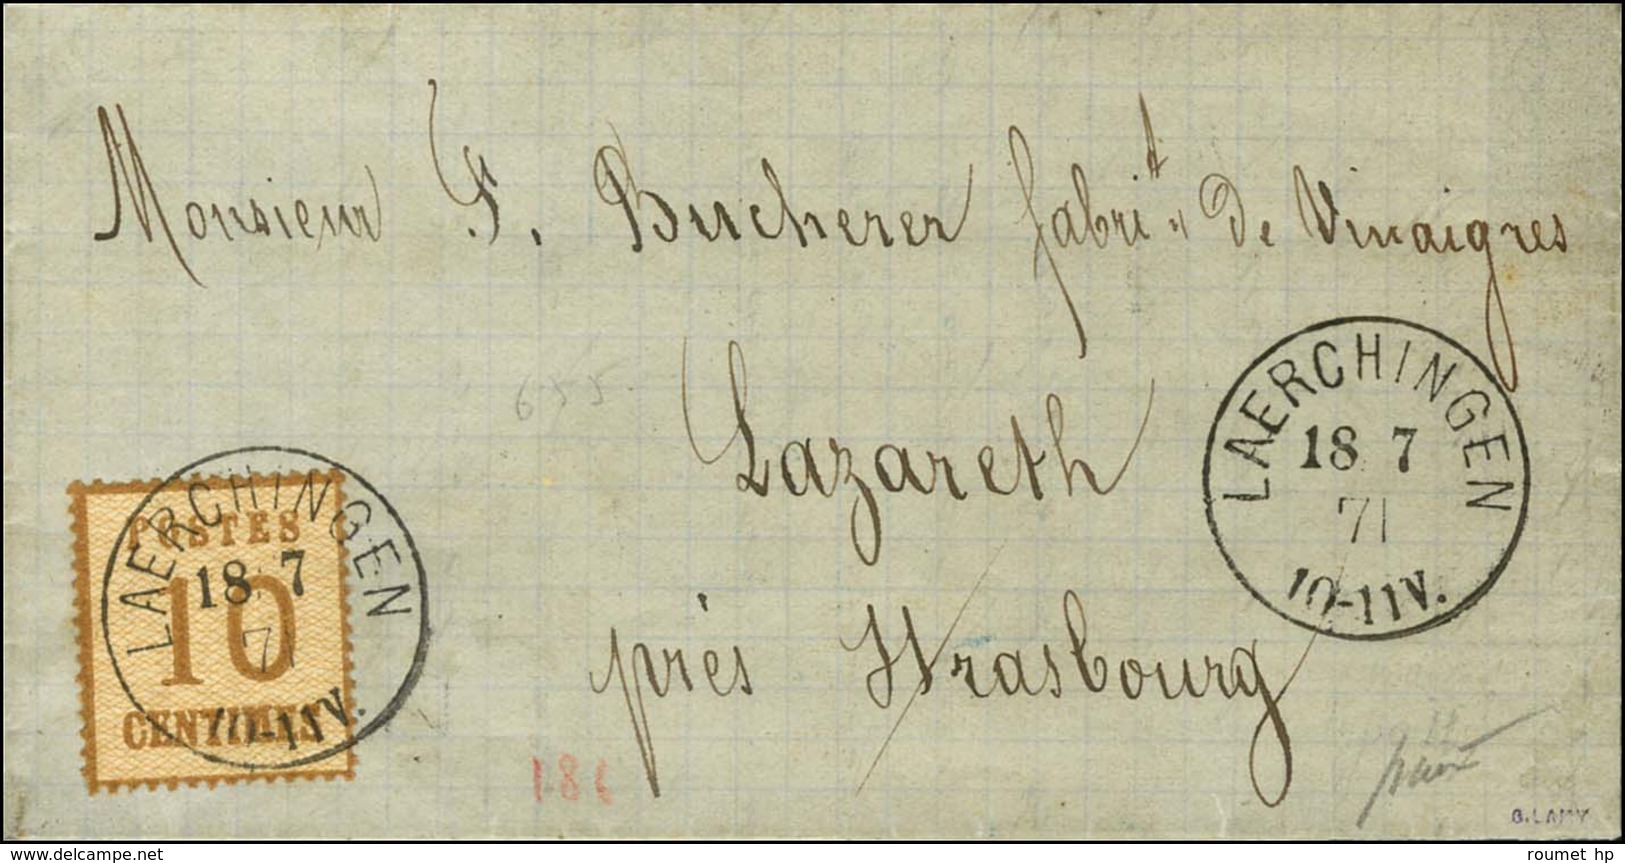 Monsieur F. Bucherer fabrit de Vinaigres
LAERCHINGEN
18 7
71
10-11V.
655
Lazareth
près Strasbourg
POSTES
10
CENTIMES
LAERCHINGEN
18 7
71
10-11V.
186
B.LAMY
www.delcampe.net
roumet hp